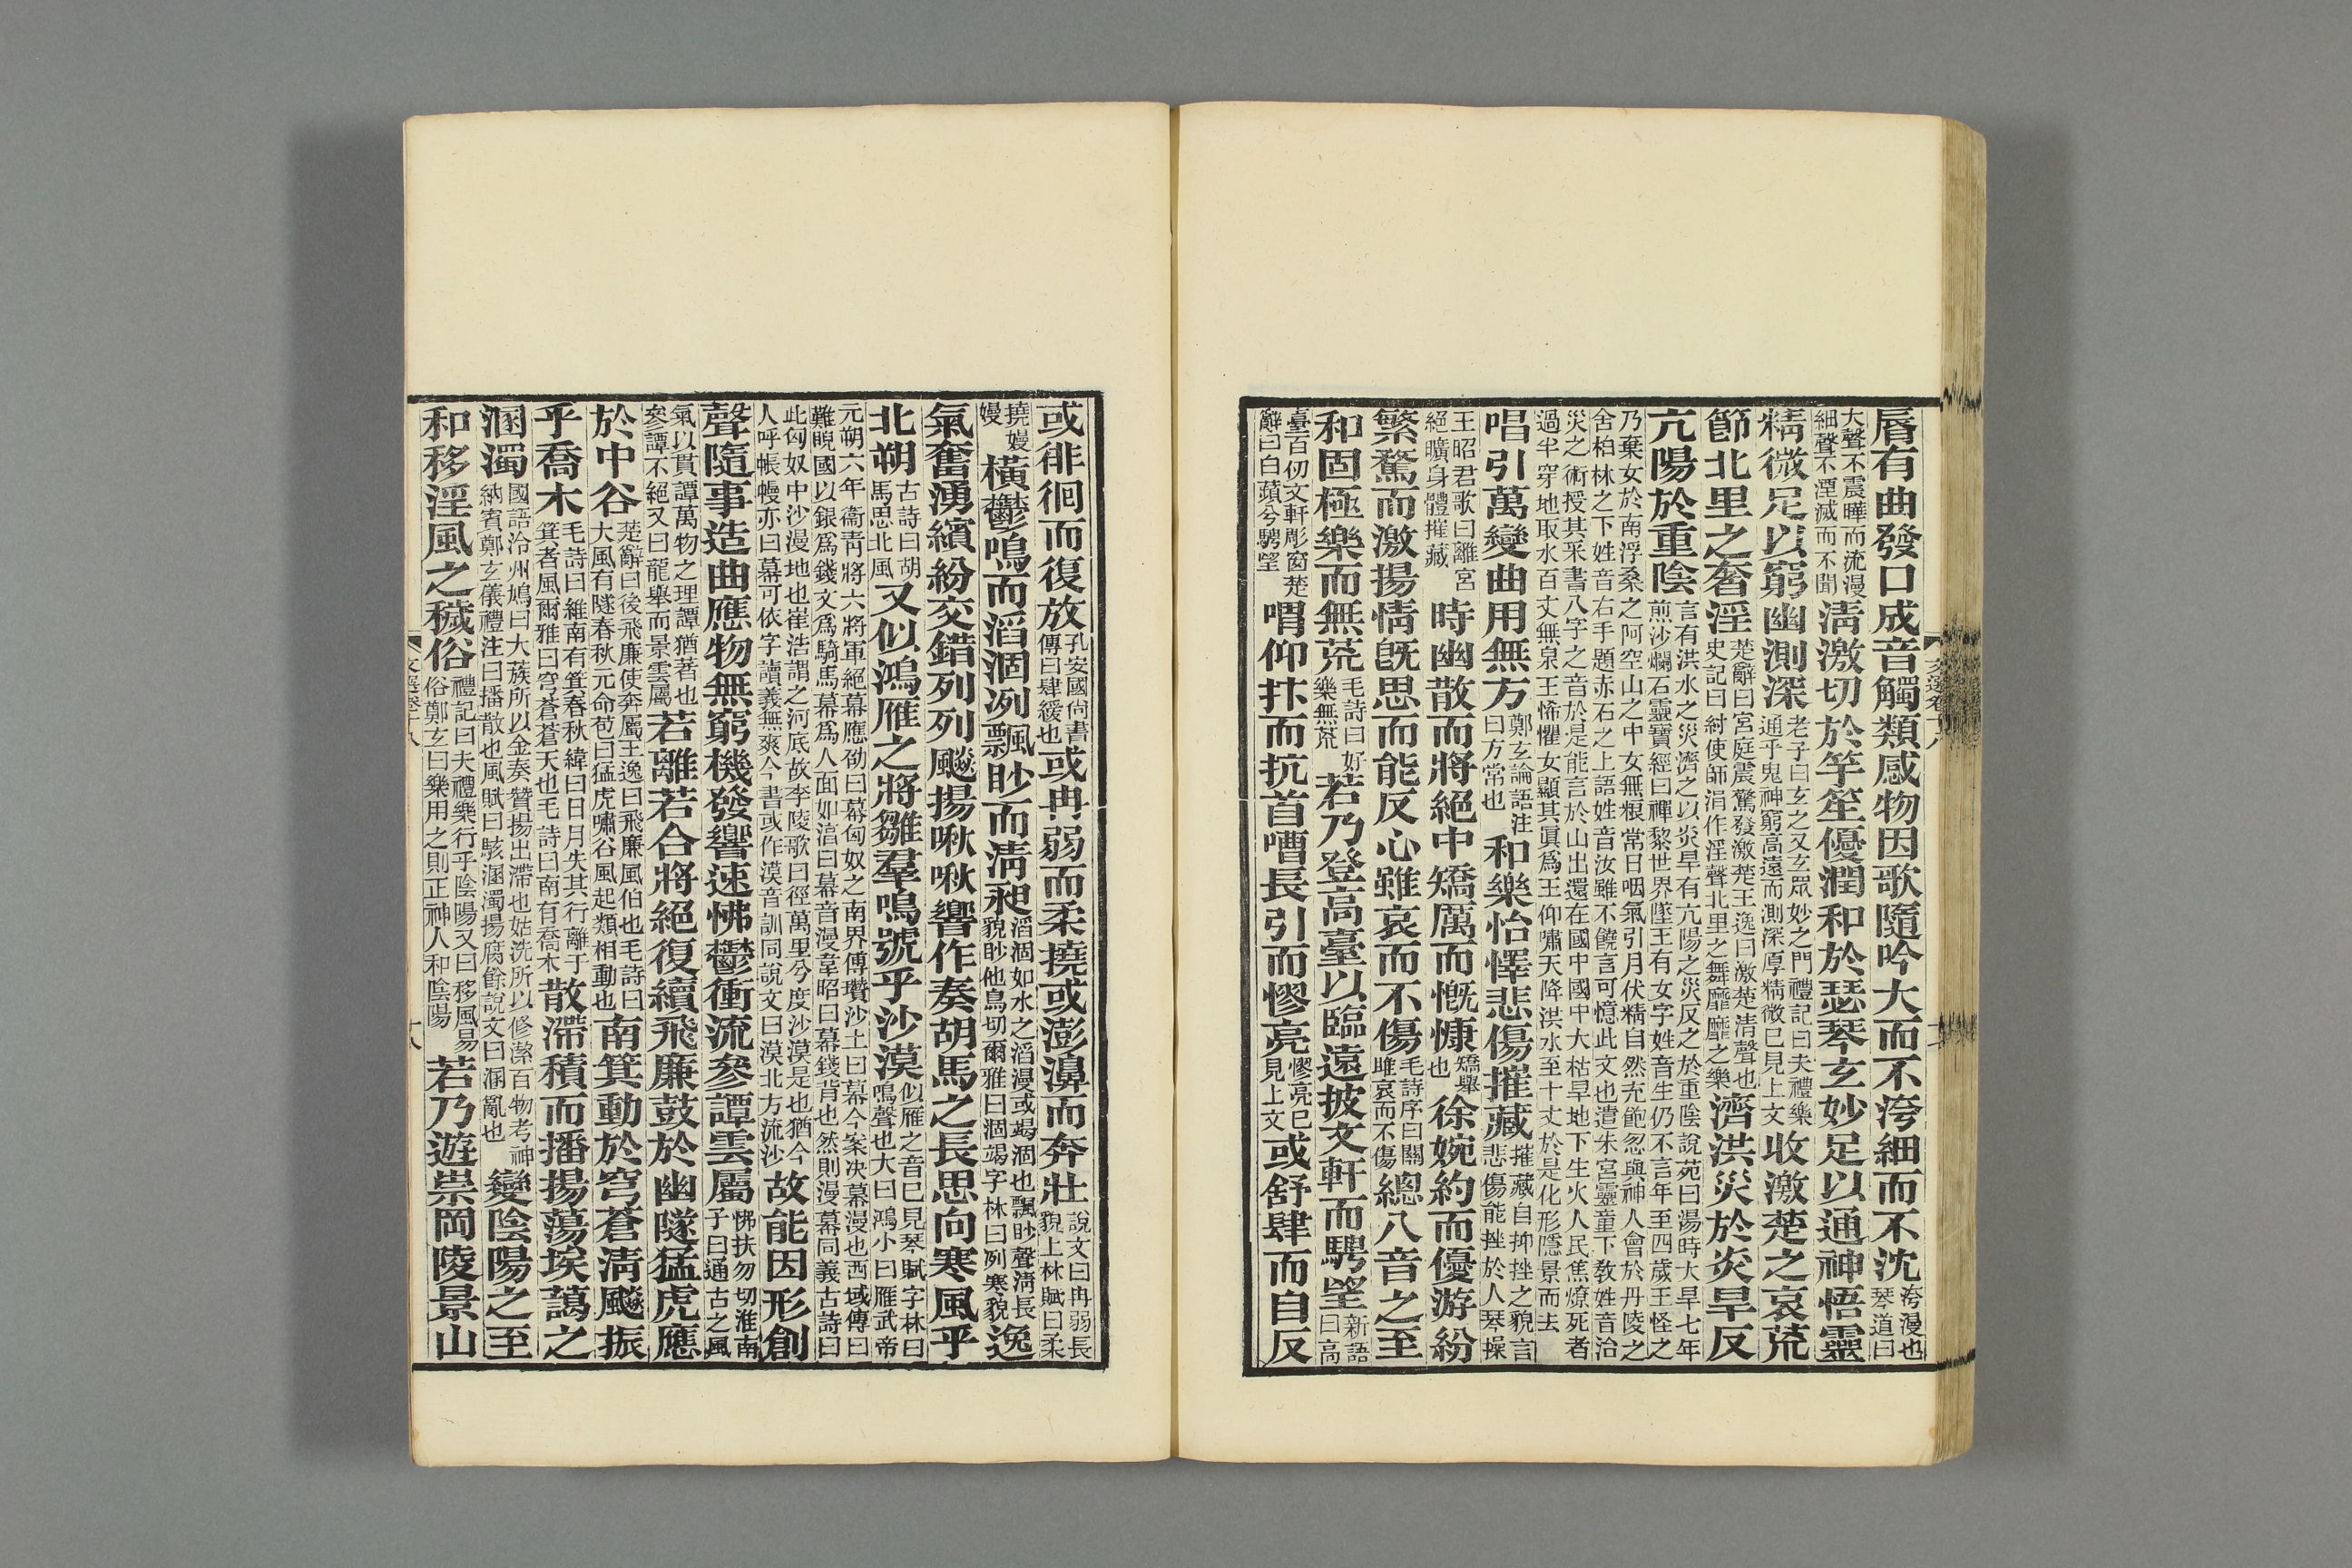 脣有曲發口成音觸類感物因歌隨吟大而不洿細而不沈洿漫也琴道曰
大聲不震嘩而流漫細聲不湮滅而不聞清激切於竽笙優潤和於瑟琴玄妙足以通神悟靈
精微足以窮幽測深老子曰玄之又玄眾妙之門禮記曰夫禮樂通乎鬼神窮高遠而測深厚精微已見上文收激楚之哀荒
節北里之奢淫楚辭曰宮庭震驚發激楚王逸曰激楚清聲也史記曰紂使師涓作淫聲北里之舞靡靡之樂濟洪災於炎旱反
亢陽於重陰言有洪水之災濟之以炎旱有亢陽之災反之於重陰說苑曰湯時大旱七年煎沙爛石靈寶經曰禪黎世界墜王有女字姓音生仍不言年至四歲王怪之
乃棄女於南浮桑之阿空山之中女無粮常日咽氣引月伏精自然充飽忽與神人會於丹陵之舍柏林之下姓音右手題赤石之上語姓音汝雖不饒言可憶此文也遣朱宮靈童下教姓音治
災之術授其采書八字之音於是能言於山出還在國中國中大枯旱地下生火人民焦燎死者過半穿地取水百丈無泉王怖懼女顯其眞爲王仰嘯天降洪水至十丈於是化形隱景而去
唱引萬變曲用無方鄭玄論語注曰方常也和樂怡懌悲傷摧藏摧藏自抑挫之貌言悲傷能挫於人琴操
王昭君歌曰離宮絕曠身體摧藏時幽散而將絕中矯厲而慨慷矯舉也徐婉約而優游紛
繁騖而激揚情旣思而能反心雖哀而不傷毛詩序曰關雎哀而不傷總八音之至
和固極樂而無荒毛詩曰好樂無荒若乃登高臺以臨遠披文軒而騁望新語曰高
臺百仞文軒彫窗楚辭曰白蘋兮騁望喟仰抃而抗首嘈長引而憀亮憀亮已見上文或舒肆而自反
文選卷十八
或徘徊而復放孔安國尚書傳曰肆緩也或冉弱而柔撓或澎濞而奔壯說文曰冉弱長貌上林賦曰柔
撓嫚嫚橫鬱鳴而滔涸冽飄眇而清昶滔涸如水之滔漫或竭涸也飄眇聲清長貌眇他鳥切爾雅曰涸竭字林曰列寒貌逸
氣奮湧繽紛交錯列列飈揚啾啾響作奏胡馬之長思向寒風乎
北朔古詩曰胡馬思北風又似鴻雁之將雛羣鳴號乎沙漠似雁之音已見琴賦字林曰鳴聲也大曰鴻小曰雁武帝
元朔六年衞青將六將軍絕幕應劭曰幕匈奴之南界傅瓚沙土曰幕今案決幕漫也西域傳曰難睨國以銀爲錢文爲騎馬幕爲人面如淳曰幕音漫韋昭曰幕錢背也然則漫幕同義古詩曰
此匈奴中沙漫地也崔浩謂之河底故李陵歌曰徑萬里兮度沙漠是也猶今人呼帳幔亦曰幕可依字讀義無爽今書或作漠音訓同說文曰漠北方流沙故能因形創
聲隨事造曲應物無窮機發響速怫鬱衝流參譚雲屬怫扶勿切淮南子曰通古之風
氣以貫譚萬物之理譚猶著也參譚不絕又曰龍舉而景雲屬若離若合將絕復續飛廉鼓於幽隧猛虎應
於中谷楚辭曰後飛廉使奔屬王逸曰飛廉風伯也毛詩曰大風有隧春秋元命苞曰猛虎嘯谷風起類相動也南箕動於穹蒼清飈振
乎喬木毛詩曰維南有箕春秋緯曰日月失其行離于箕者風爾雅曰穹蒼蒼天也毛詩曰南有喬木散滯積而播揚蕩埃藹之
溷濁國語泠州鳩曰大蔟所以金奏贊揚出滯也姑洗所以修潔百物考神納賓鄭玄儀禮注曰播散也風賦曰駭溷濁揚腐餘說文曰溷亂也變陰陽之至
和移淫風之穢俗禮記曰夫禮樂行乎陰陽又曰移風易俗鄭玄曰樂用之則正神人和陰陽若乃遊崇岡陵景山
文選卷十八
十八